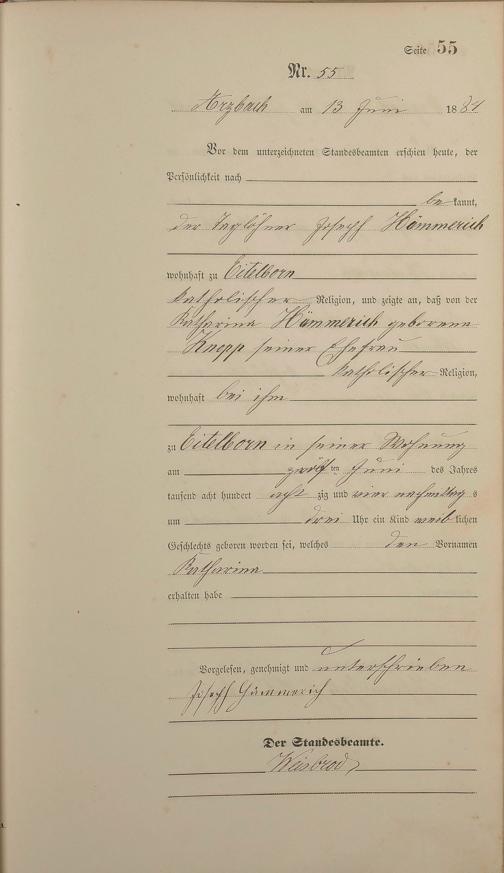 Seite 55
Nr. 55
Arzbach am 13 Juni 1884
Vor dem unterzeichneten Standesbeamten erschien heute, der
Persönlichkeit nach
bekannt,
der Taglöhner Joseph Hämmerich
wohnhaft zu Eitelborn
katholischer Religion, und zeigte an, daß von der
Katharina Hämmerich geborene
Knopp seiner Ehefrau
katholischer Religion,
wohnhaft bei ihm
zu Eitelborn in seiner Wohnung
am zwölf ten Juni des Jahres
tausend acht hundert acht zig und vier nachmittags
um drei Uhr ein Kind weiblichen
Geschlechts geboren worden sei, welches den Vornamen
Katharina
erhalten habe
Vorgelesen, genehmigt und unterschrieben
Joseph Hämmerich
Der Standesbeamte.
Weisbrod